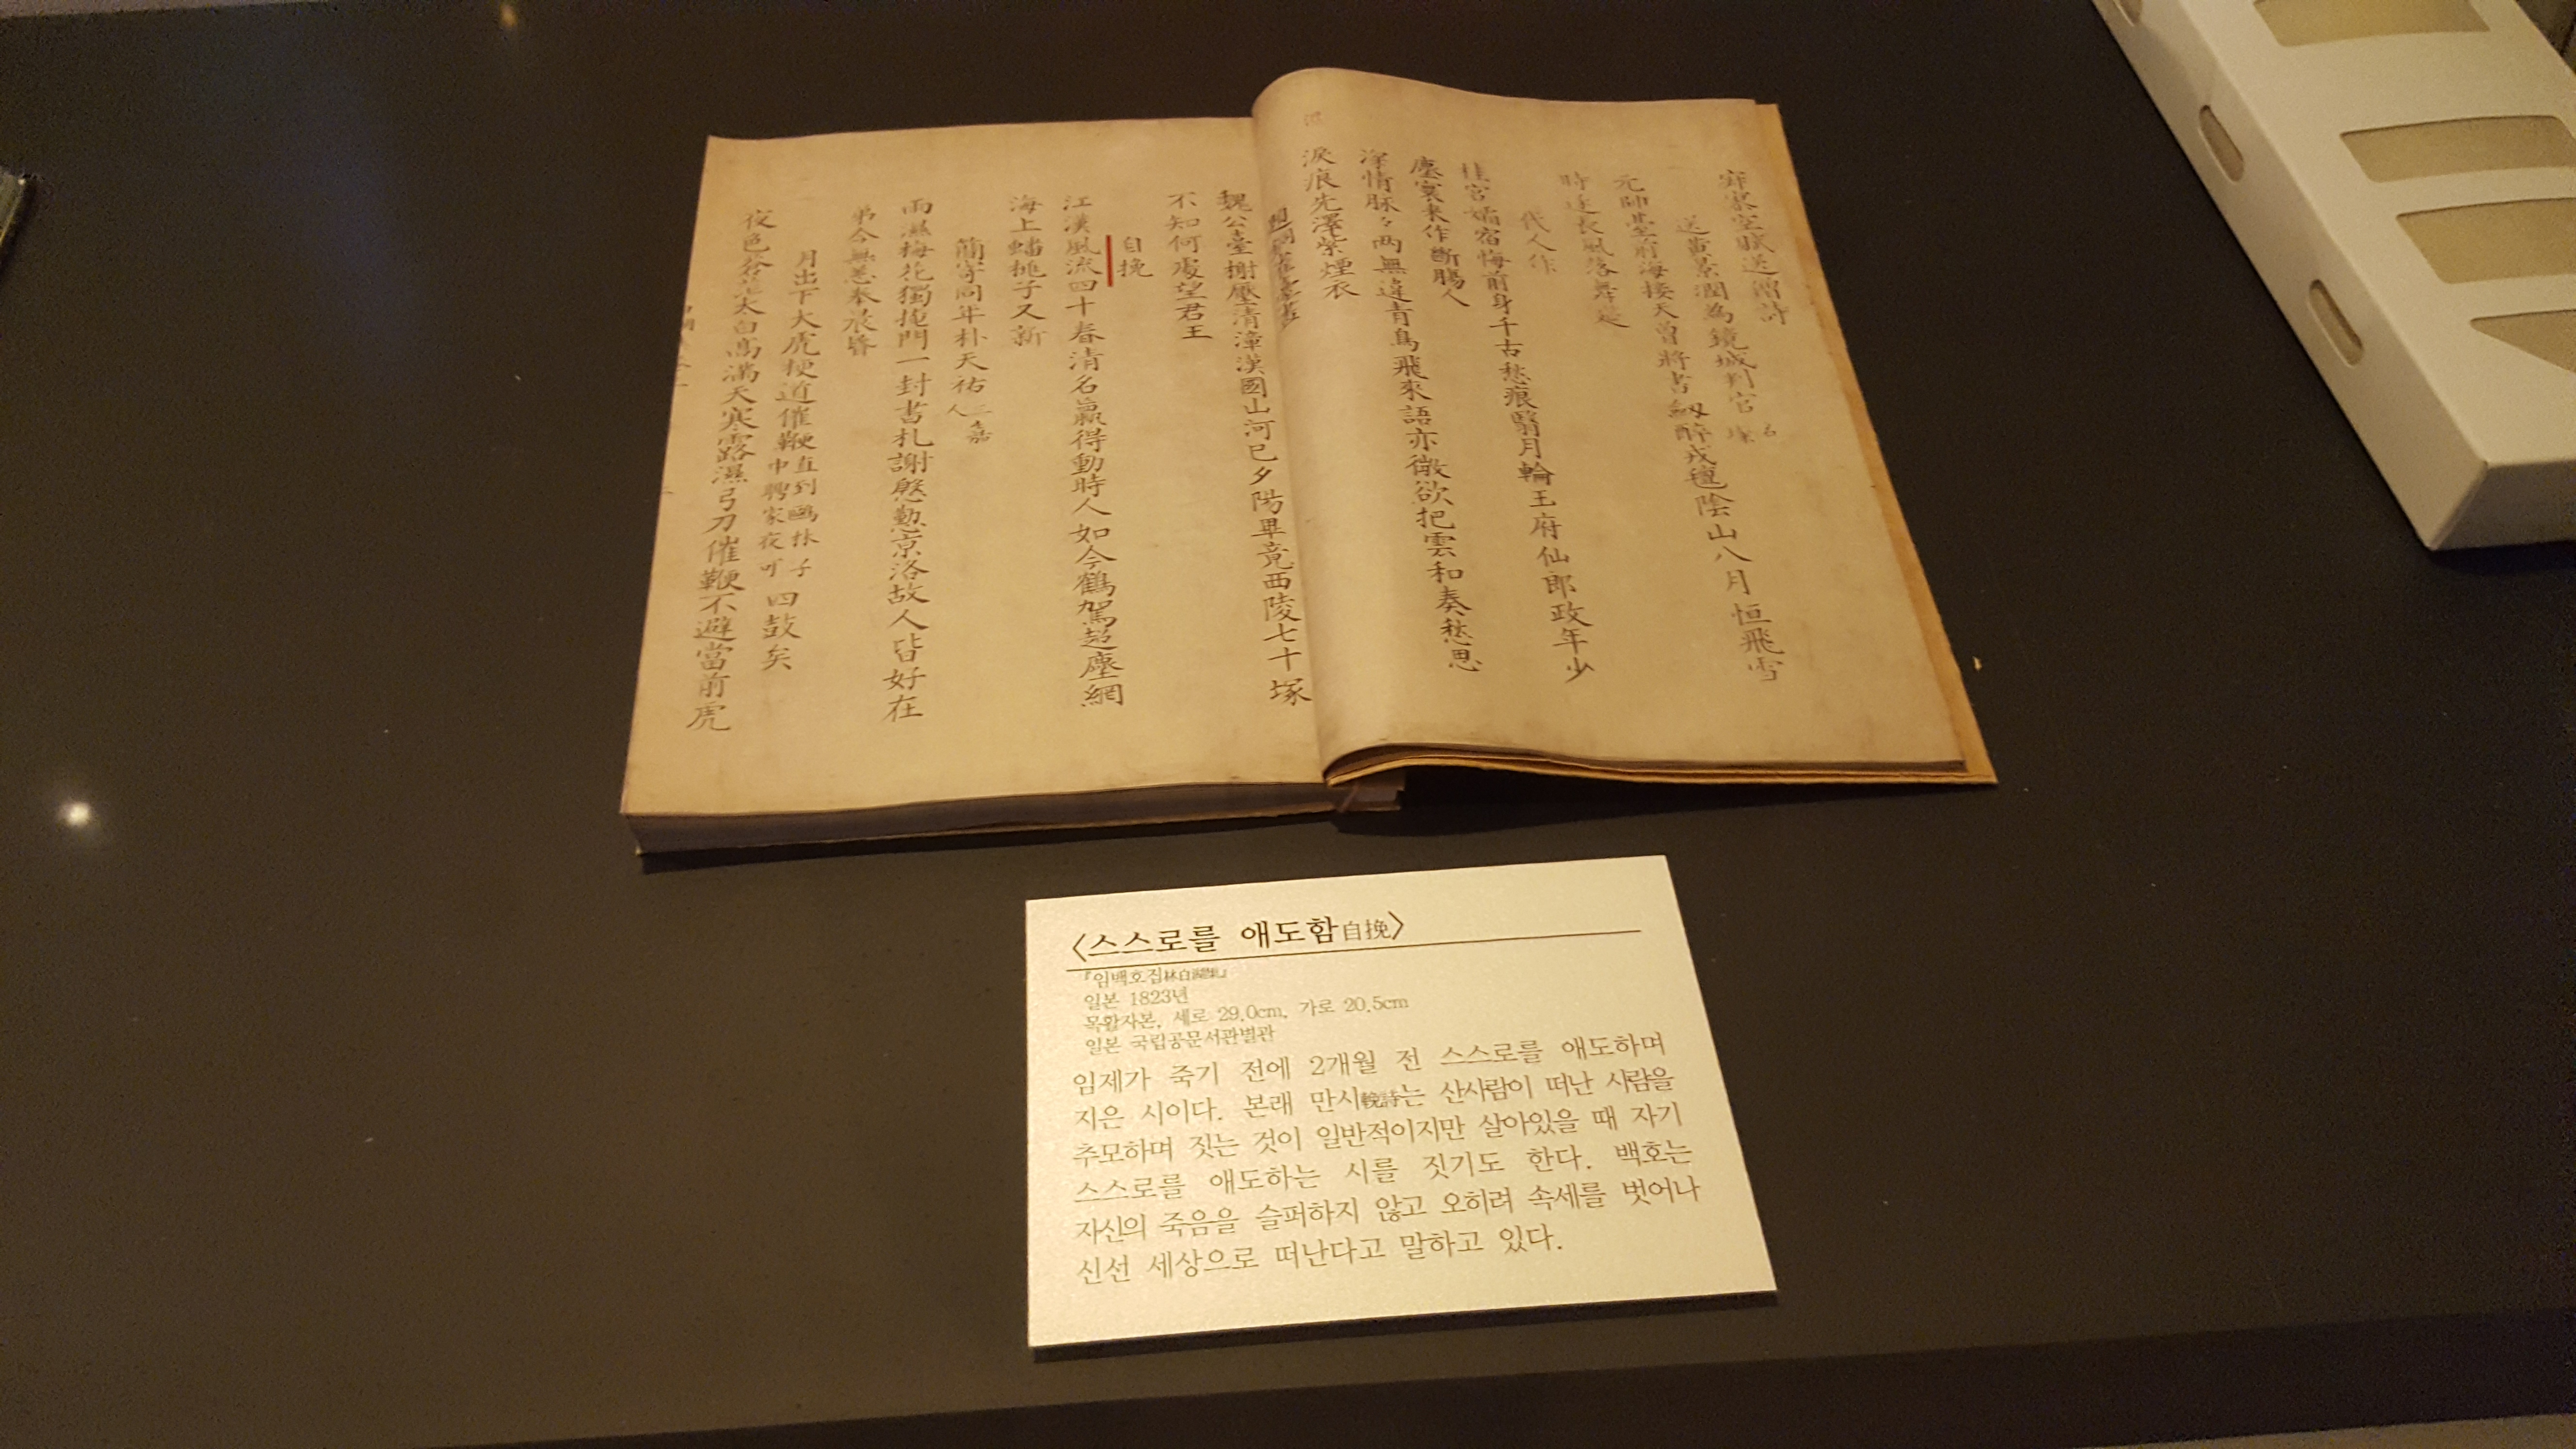 送黃景潤為鏡城判官
元帥臺前海接天曾將書劒醉戎氊陰山八月恒飛雪
時逐長風落舞筵
代人作
桂宮孀宿悔前身千古愁痕翳月輪王府仙郎政年少
塵寰来作斷膓人
深情脉々两無違青鳥飛來語亦微欲把雲和奏愁思
淚痕先濕紫煙衣
魏公臺榭壓清漳漢國山河已夕陽畢竟西陵七十塚
不知何處望君王
自挽
江漢風流四十春清名嬴得動時人如今鶴駕超塵網
海上蟠桃子又新
簡寄同年朴天祐
雨濕梅花獨掩門一封書札謝慇懃京洛故人皆好在
弟今無恙奉晨昏
月出下大虎梗道催鞭
四鼓矣
夜色蒼茫太白高滿天寒露濕弓刀催鞭不避當前虎
〈스스로를 애도함自挽〉
『임백호집林白湖集』
일본 1823년
목활자본, 세로 29.0cm, 가로 20.5cm
일본 국립공문서관별관
임제가 죽기 전에 2개월 전 스스로를 애도하며
지은 시이다. 본래 만시輓詩는 산사람이 떠난 사람을
추모하며 짓는 것이 일반적이지만 살아있을 때 자기
스스로를 애도하는 시를 짓기도 한다. 백호는
자신의 죽음을 슬퍼하지 않고 오히려 속세를 벗어나
신선 세상으로 떠난다고 말하고 있다.